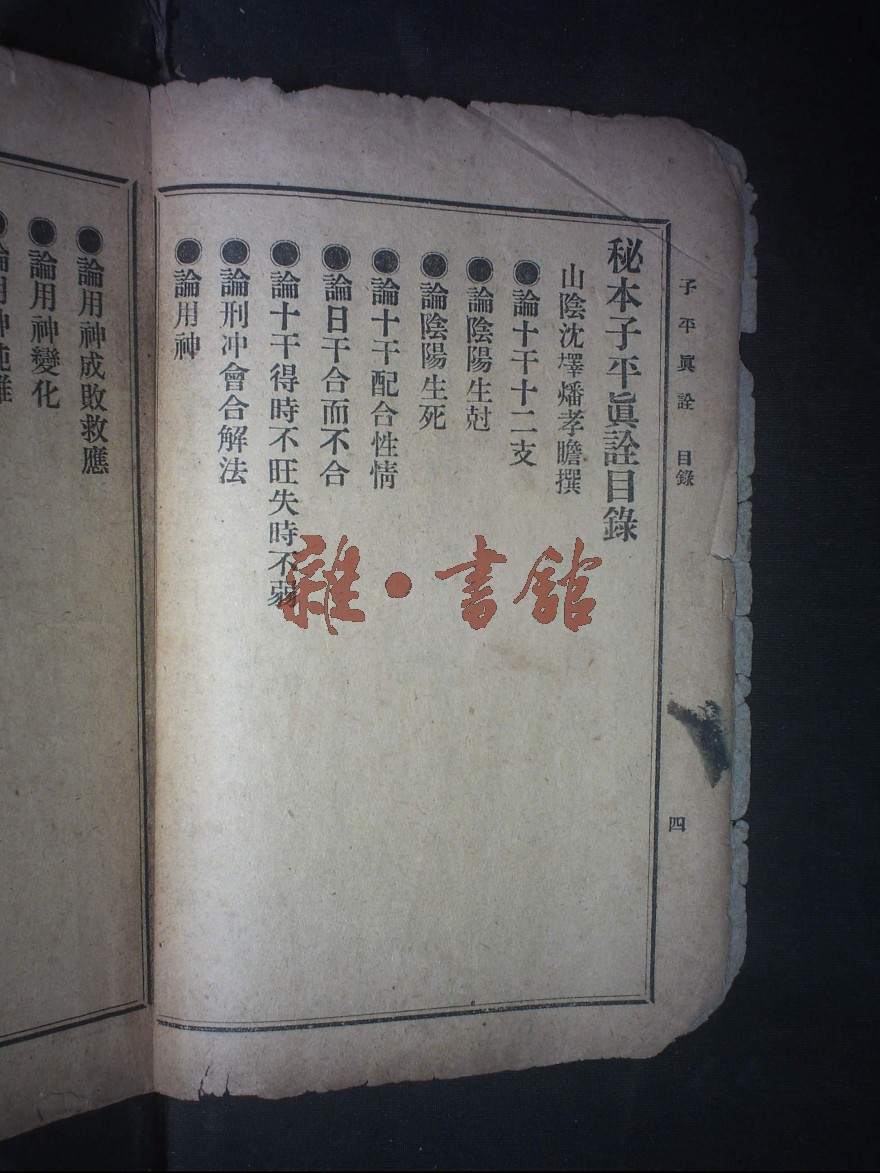 子平眞詮 目錄
四
秘本子平眞詮目錄
山陰沈墿燔孝瞻撰
●論十干十二支
●論陰陽生尅
●論陰陽生死
●論十干配合性情
●論日干合而不合
●論十干得時不旺失時不弱
●論刑冲會合解法
●論用神
●論用神成敗救應
●論用神變化
論用神純雜
雜·書館